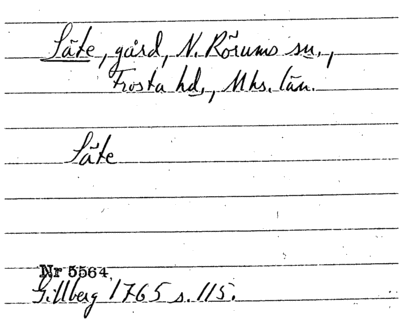 Säte, gård, N. Rörums sn.,
Frosta hd., Mhs. län.
Säte
Nr 5564
Gillberg 1765 s. 115.